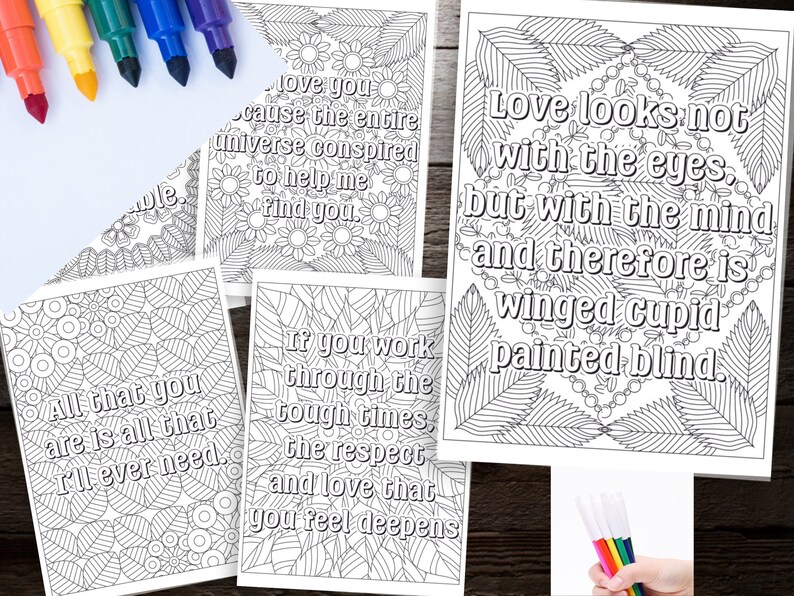 I love you
because the entire
universe conspired
to help me
find you.
Love looks not
with the eyes,
but with the mind
and therefore is
winged cupid
painted blind.
All that you
are is all that
I'll ever need.
If you work
through the
tough times,
the respect
and love that
you feel deepens